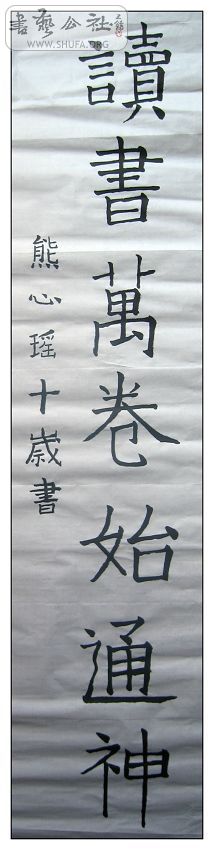 書藝公社
WWW.SHUFA.ORG
讀書萬卷始通神
熊心瑶十歲書